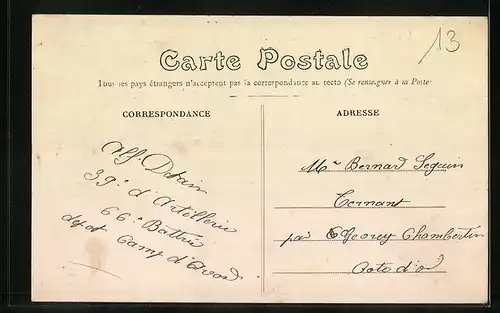 13
Carte Postale
Tous les pays étrangers n'acceptent pas la correspondance au recto (Se renseigner à la Poste)
CORRESPONDANCE
ADRESSE
Alf
39e d'Artillerie
66e Battrie
depot Camp d'Avord
Mr Bernard Seguin
Ternant
par Gevrey Chambertin
Cote d'or